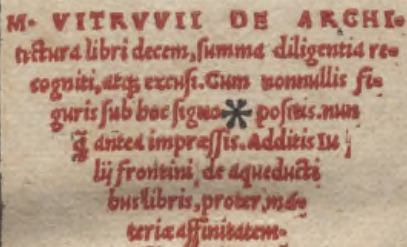 M. VITRVVII DE ARCHI-
tectura libri decem, summa diligentia re-
cogniti, atq; excusi. Cum nonnullis fi-
guris sub hoc signo * positis, nun
q̃ antea impræssis. Additis Iu
lij frontini, de aqueducti
bus libris, propter, ma-
teriæ affinitatem.